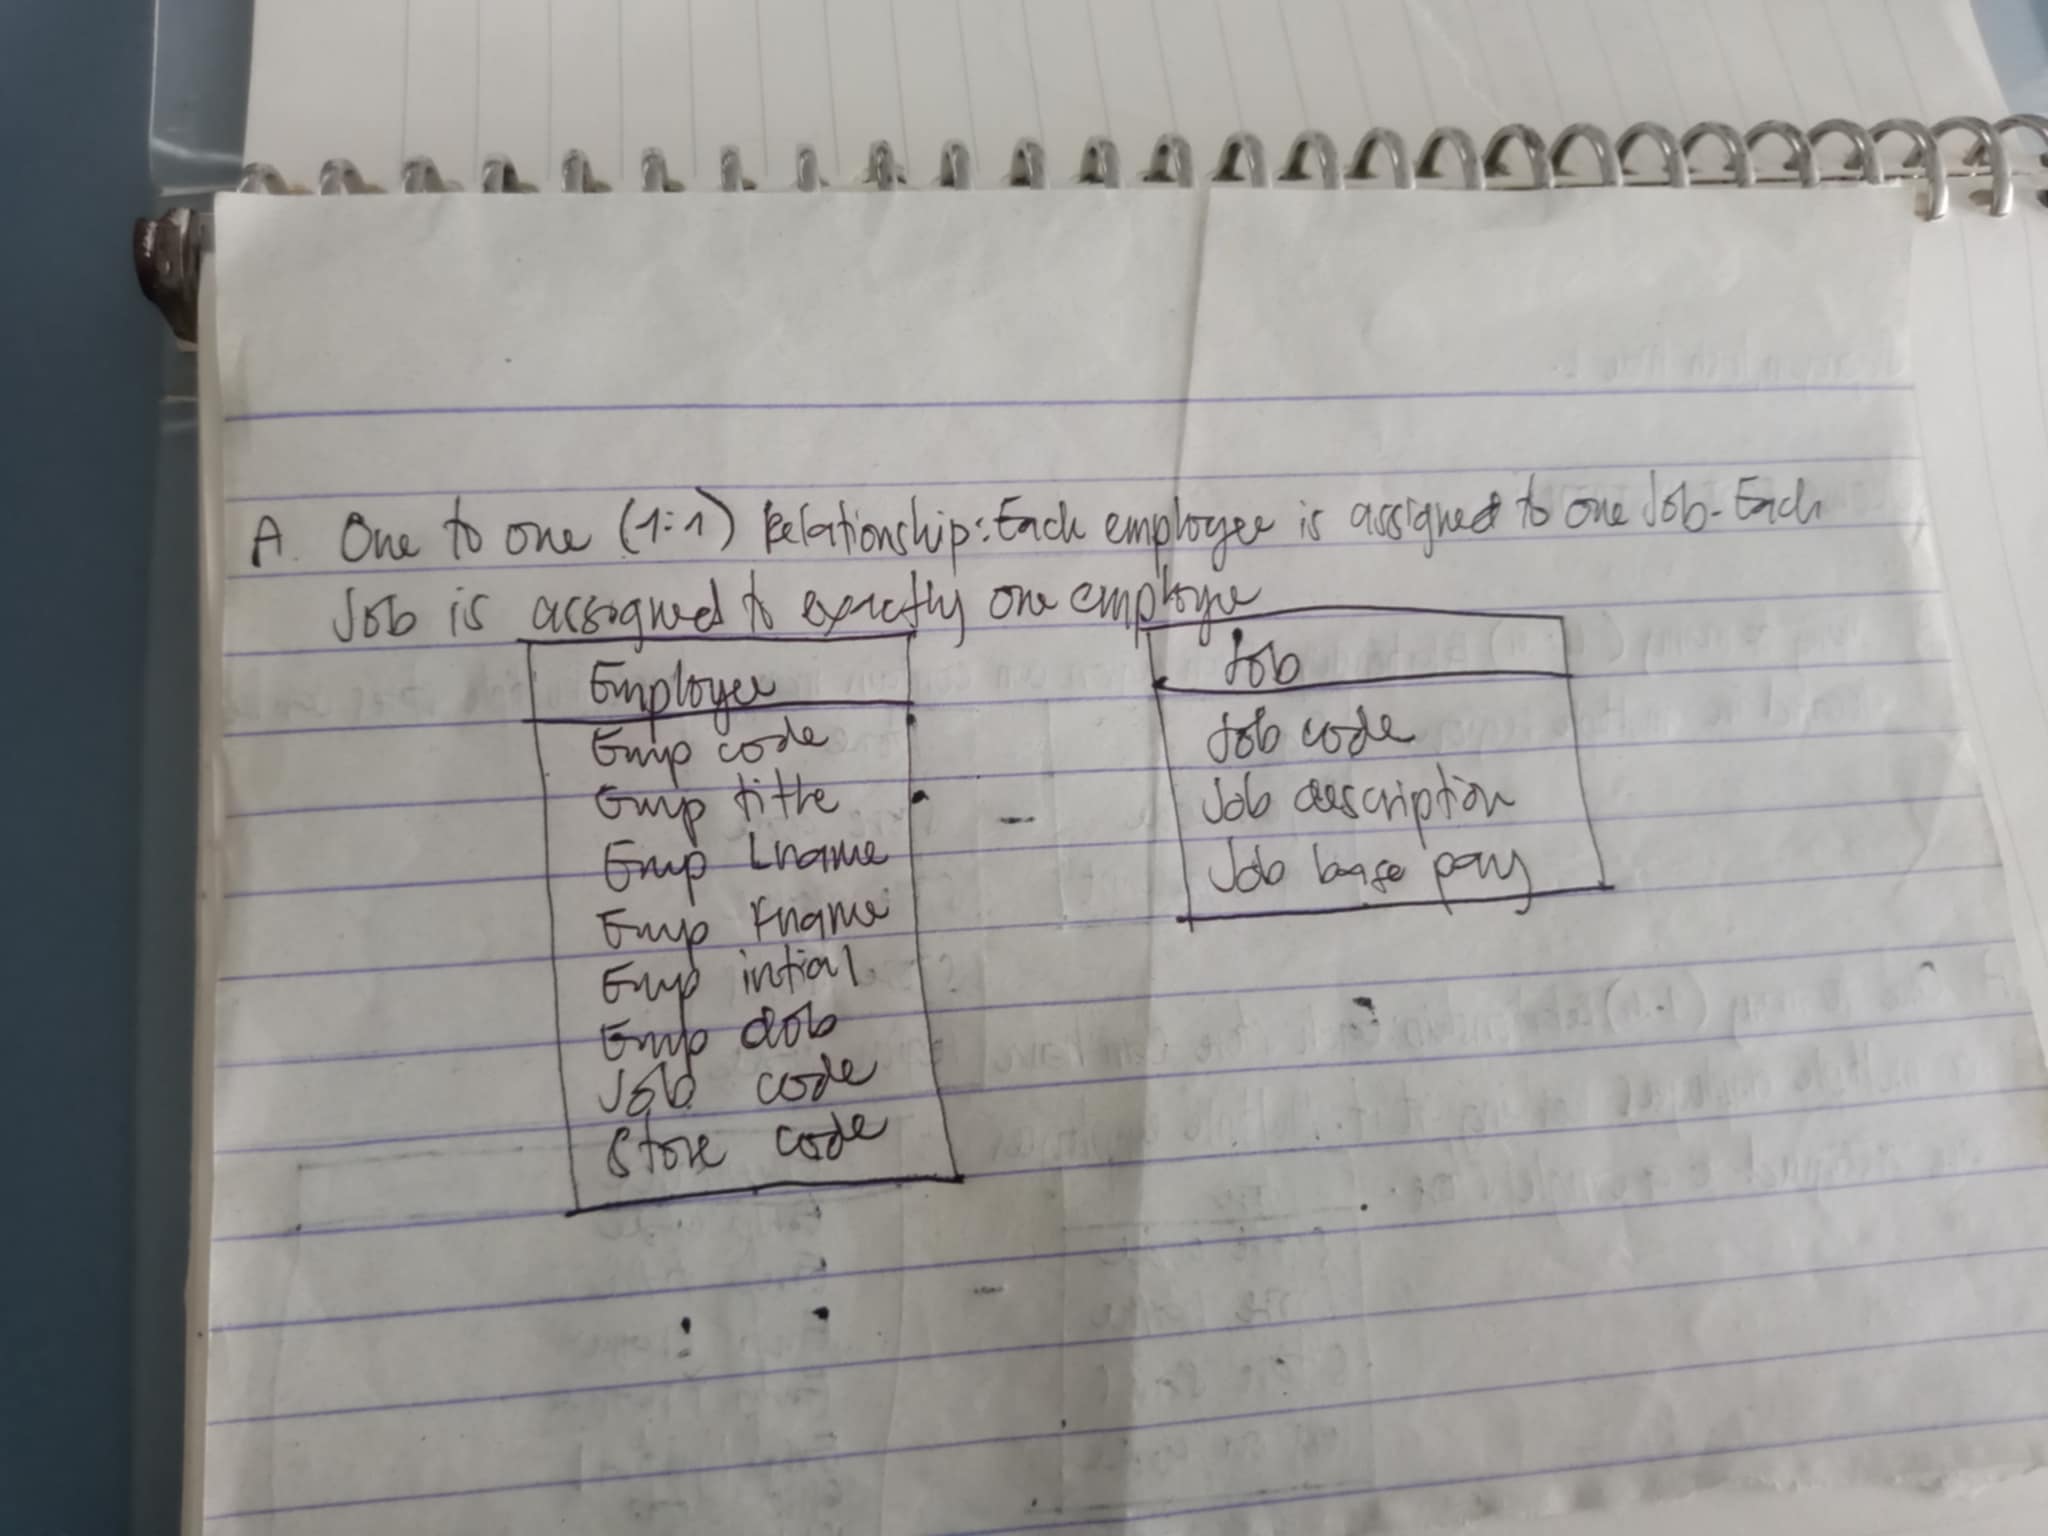 A. One to one (1:1) Relationship: Each employee is assigned to one Job. Each
Job is assigned to exactly one employe
Employee
Emp code
Emp title
Emp Lname
Emp Fname
Emp intial
Emp dob
Job code
Store code
Job
Job code
Job description
Job base pay